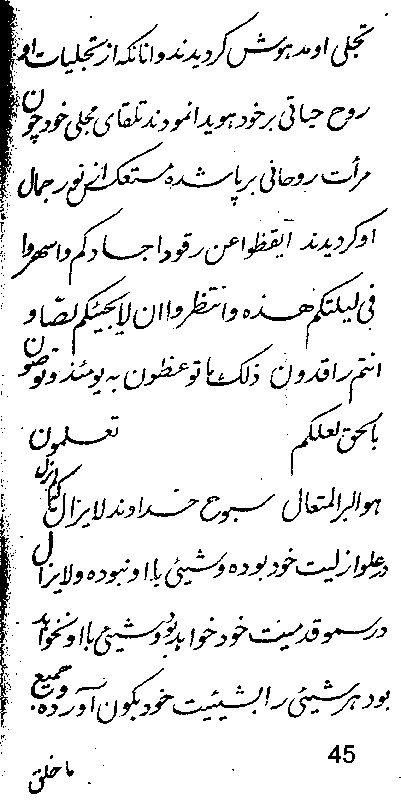 تجلی او مدهوش کردیدند و انانکه از تجلیات او
روح حیاتی بر خود هویدا نمودند تلقای مجلی خود چون
مرأت روحانی برپا شده مستعکس از نور جمال
او کردیدند ایقظوا عن رقود اجسادکم واسهروا
فی لیلتکم هذه وانتظروا ان لا یجیئکم لصا و
انتم راقدون ذلک ما توعظون به یومئذ وتوصون
بالحق لعلکم تعلمون
هو البر المتعال سبوح خداوند لایزال
در علو ازلیت خود بوده و شیئی با او نبوده و لایزال
در سمو قدمیت خود خواهد بود و شیئی با او نخواهد
بود هر شیئی را بشیئیت خود بکون آورده و جمیع
45
ما خلق